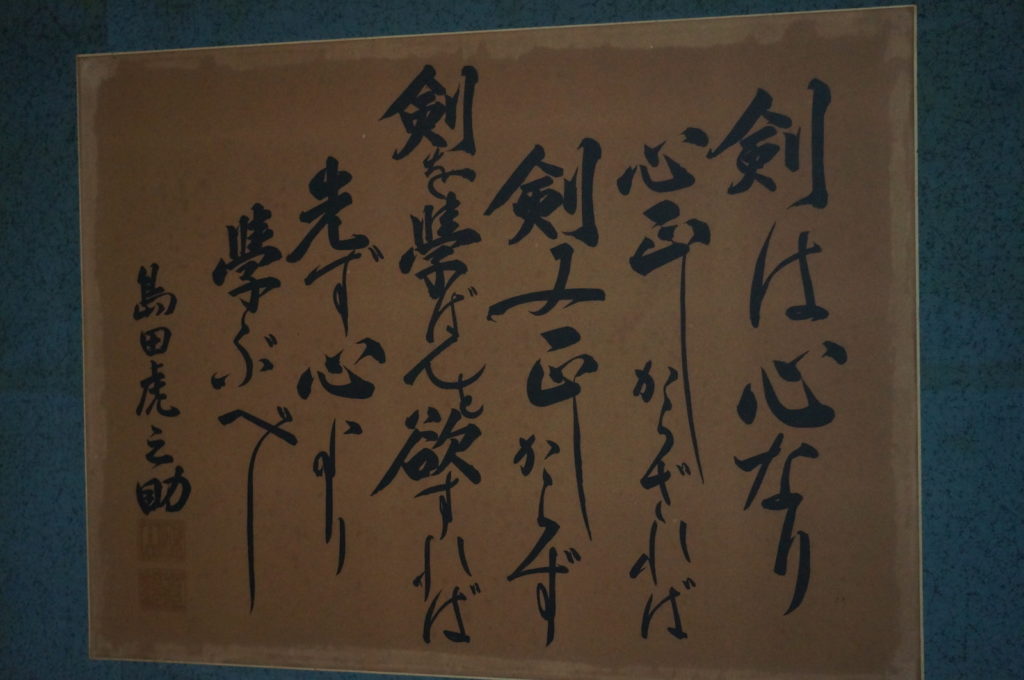 剣は心なり
心正しからざれば
剣又正しからず
剣を學ばんと欲すれば
先ず心より
學ぶべし
島田虎之助